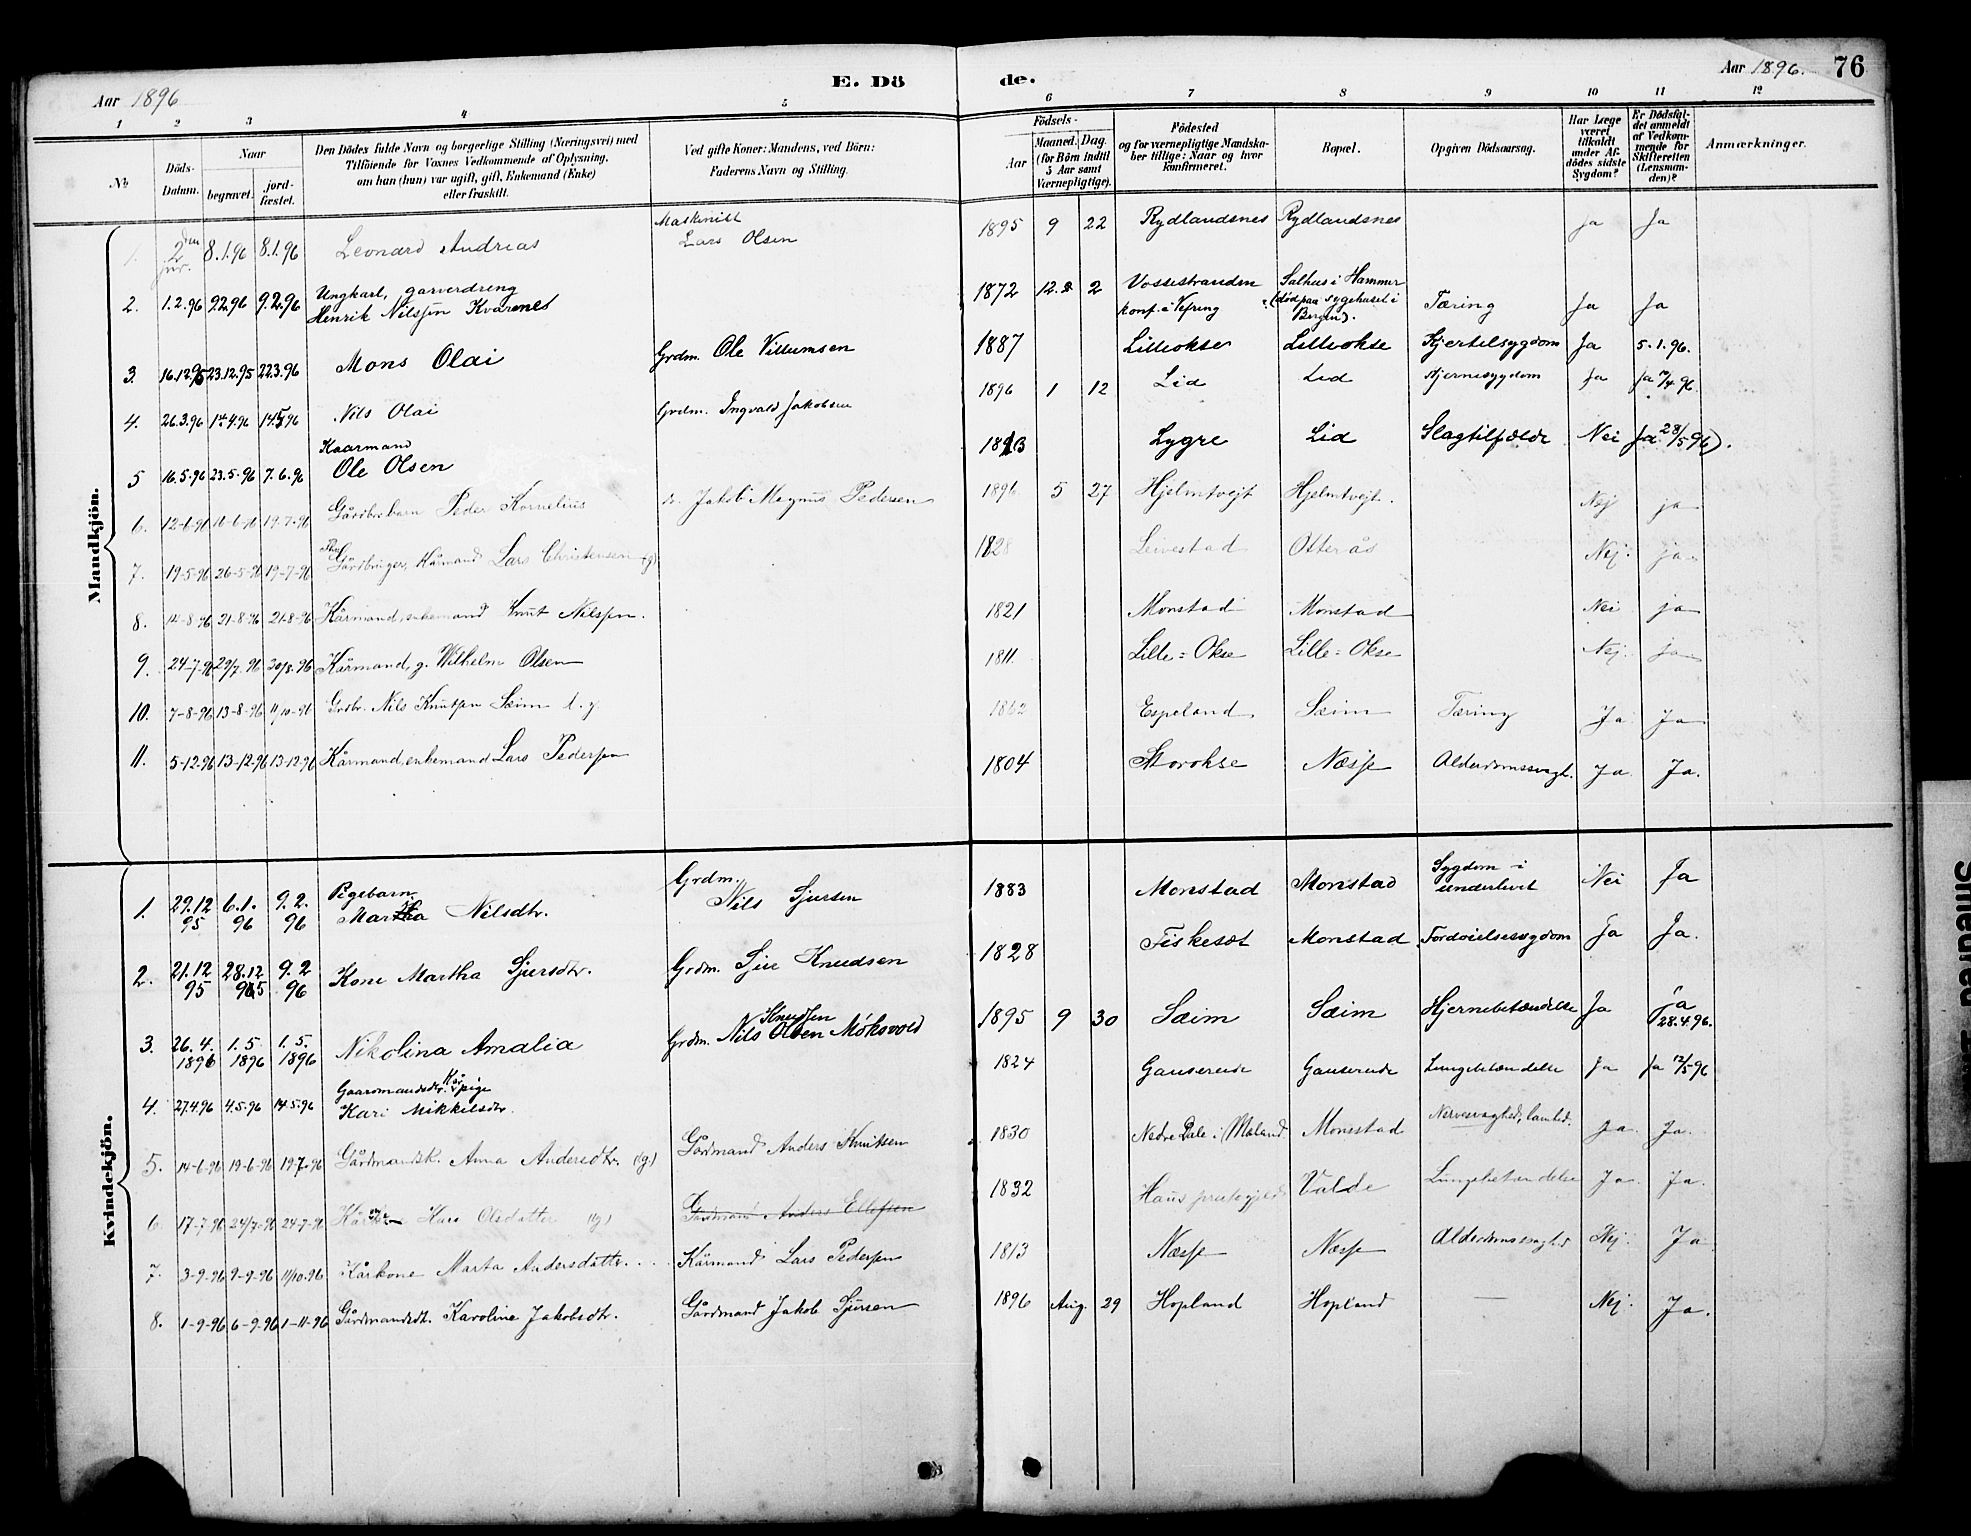 Aar 1896 E. Dö de. Aar 1896. 76
1 2 3 4 5 6 7 8 9 10 11 12
No Döds-Datum. Naar begravet. jordfæstet. Den Dödes fulde Navn og borgerlige Stilling (Næringsvei) med Tilföiende for Voxnes Vedkommende af Oplysning, om han (hun) var ugift, gift, Enkemand (Enke) eller fraskilt. Ved gifte Koner: Mandens, ved Börn: Faderens Navn og Stilling. Födsels- Aar Maaned. Dag. (for Börn indtil 5 Aar samt Værnepligtige). Födested og for værnepligtige Mandskaber tillige: Naar og hvor konfirmeret. Bopæl. Opgiven Dödsaarsag. Har Læge været tilkaldt under Afdödes sidste Sygdom? Er Dödsfaldet anmeldt af Vedkommende for Skifteretten (Lensmanden)? Anmærkninger.
Mandkjön.
1. den 2 jnr. 8.1.96 8.1.96 Leonard Andreas Maskinist Lars Olsen 1895 9 22 Rydlandsnes Rydlandsnes ja Ja
2. 1.2.96 9.2.96 9.2.96 Ungkarl, garverdreng Henrik Nilssen Kvarnes 1872 12. 2 Vossestranden konf. i Vefring Salhus i Hammer (död paa sygehuset i Bergen). Tæring Ja Ja
3. 16.12.95 23.12.95 22.3.96 Mons Olai Grdm. Ole Villumsen 1887 Lilleokse Lilleokse Kjertelsygdom Ja 5.1.96.
4. 26.3.96 1.4.96 14.5.96 Nils Olai Grdm. Ingvald Jakobsen 1896 1 12 Lid Lid Hjernesygdom Ja Ja 7/4 96.
5 16.5.96 23.5.96 7.6.96 Kaarmand Ole Olsen 1813 Lygre Lid Slagtilfælde Nei Ja 28/5 96).
6. 12-6-96 16-6-96 19-7-96 Gårdbrbarn Peder Kornelius Jakob Magnus Pedersen 1896 5 27 Hjelmtvejt Hjelmtvejt. Nej ja
7. 19-5-96 26-5-96 19-7-96 Gårdbruger, Kårmand Lars Christensen (g) 1828 Leivestad Otterås Nej. ja
8. 14-8-96 21-8-96 21-8-96 Kårmand, enkemand Knut Nilssen. 1821 Monstad Monstad Nei ja
9. 24-7-96 29/7. 96 30/8.96 Kårmand, g. Wilhelm Olsen 1811. Lille=Okse Lille=Okse Nej. ja
10. 7-8-96 13-8-96 11/10-96 Grdbr. Nils Knutsen Sæim 1862 Espeland Sæim Tæring Ja Ja
11. 5-12-96 13-12-96 13-12-96 Kårmand, enkemand Lars Pedersen 1804 Storokse Næsse Alderdomssvagh. Ja Ja.
Kvindekjön.
1. 29.12 95 6.1. 96 9.2. 96 Pigebarn Martha Nilsdtr. Grdm. Nils Sjursen 1883 Monstad Monstad Sygdom i underlivet Nei Ja
2. 21.12 95 28.12 95 9.2 96 Kone Martha Sjursdtr. Grdm. Sjur Knudsen 1828 Fiskesæt Monstad Fordøielsessygdom Ja Ja.
3. 26.4. 1896 1.5 1896 1.5. 1896 Nikolina Amalia Grdm. Nils Knudsen Olsen Møksvold 1895 9 30 Sæim Sæim Hjernebetændelse Ja Ja 28.4.96.
4. 27.4.96 4.5.96 14.5.96 Gaardmandsdtr. Kår pige Kari Mikkelsdtr. 1824 Gausereide Gausereide Lungebetændelse Ja Ja 12/5 96
5. 14-6-96 19-6-96 19-7-96 Gårdmandsk. Anna Andersdtr. (g) Gårdmand Anders Knutsen 1830 Nedre Dale i Mæland. Monstad Nervesvaghed, lamhed. Ja. Ja.
6. 17-7-96 24/7-96 24-7-96 Kari Olsdatter (g) Gårdmand Anders Ellefsen 1832 Haus præstegjeld Valde Lungebetændelse Ja. Ja.
7. 3-9-96 9-9-96 11/10.96 Kårkone Marta Andersdatter. Kårmand Lars Pedersen 1813 Næsse Næsse Alderdomssvaghed Nej. Ja
8. 1-9-96 6-9-96 1-11-96 Gårdmandsdt. Karoline Jakobsdtr. Gårdmand Jakob Sjursen 1896 Aug. 29 Hopland Hopland — Nej. Ja.